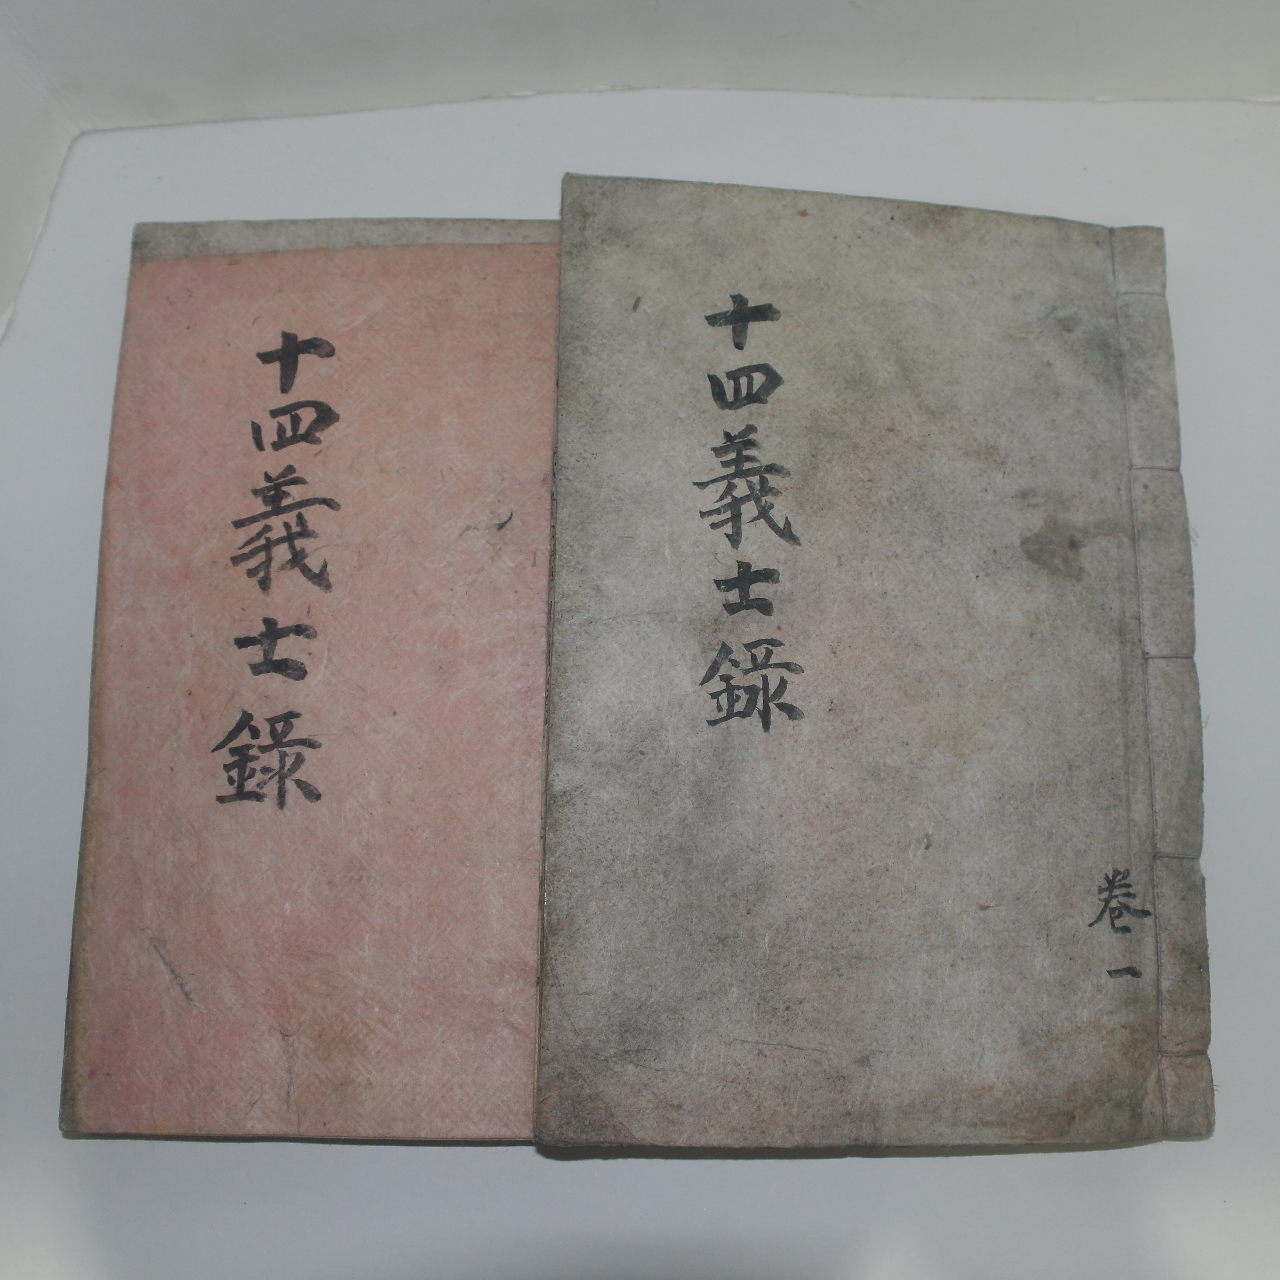 十四義士錄
卷一
十四義士錄